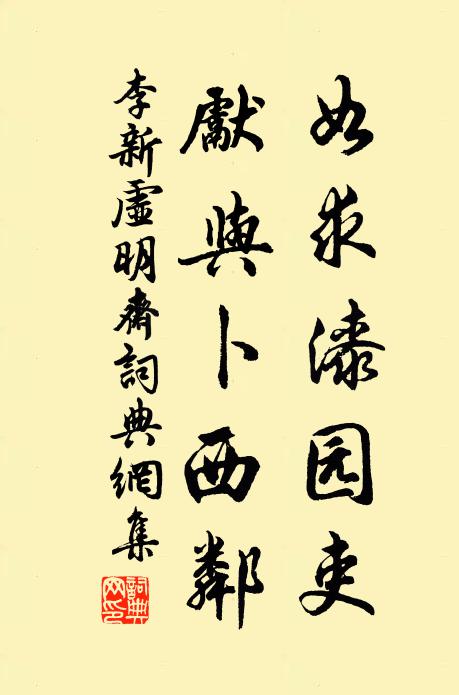 如求漆园吏
獻與卜西鄰
李新虛明齋詞典網集
詞典网印